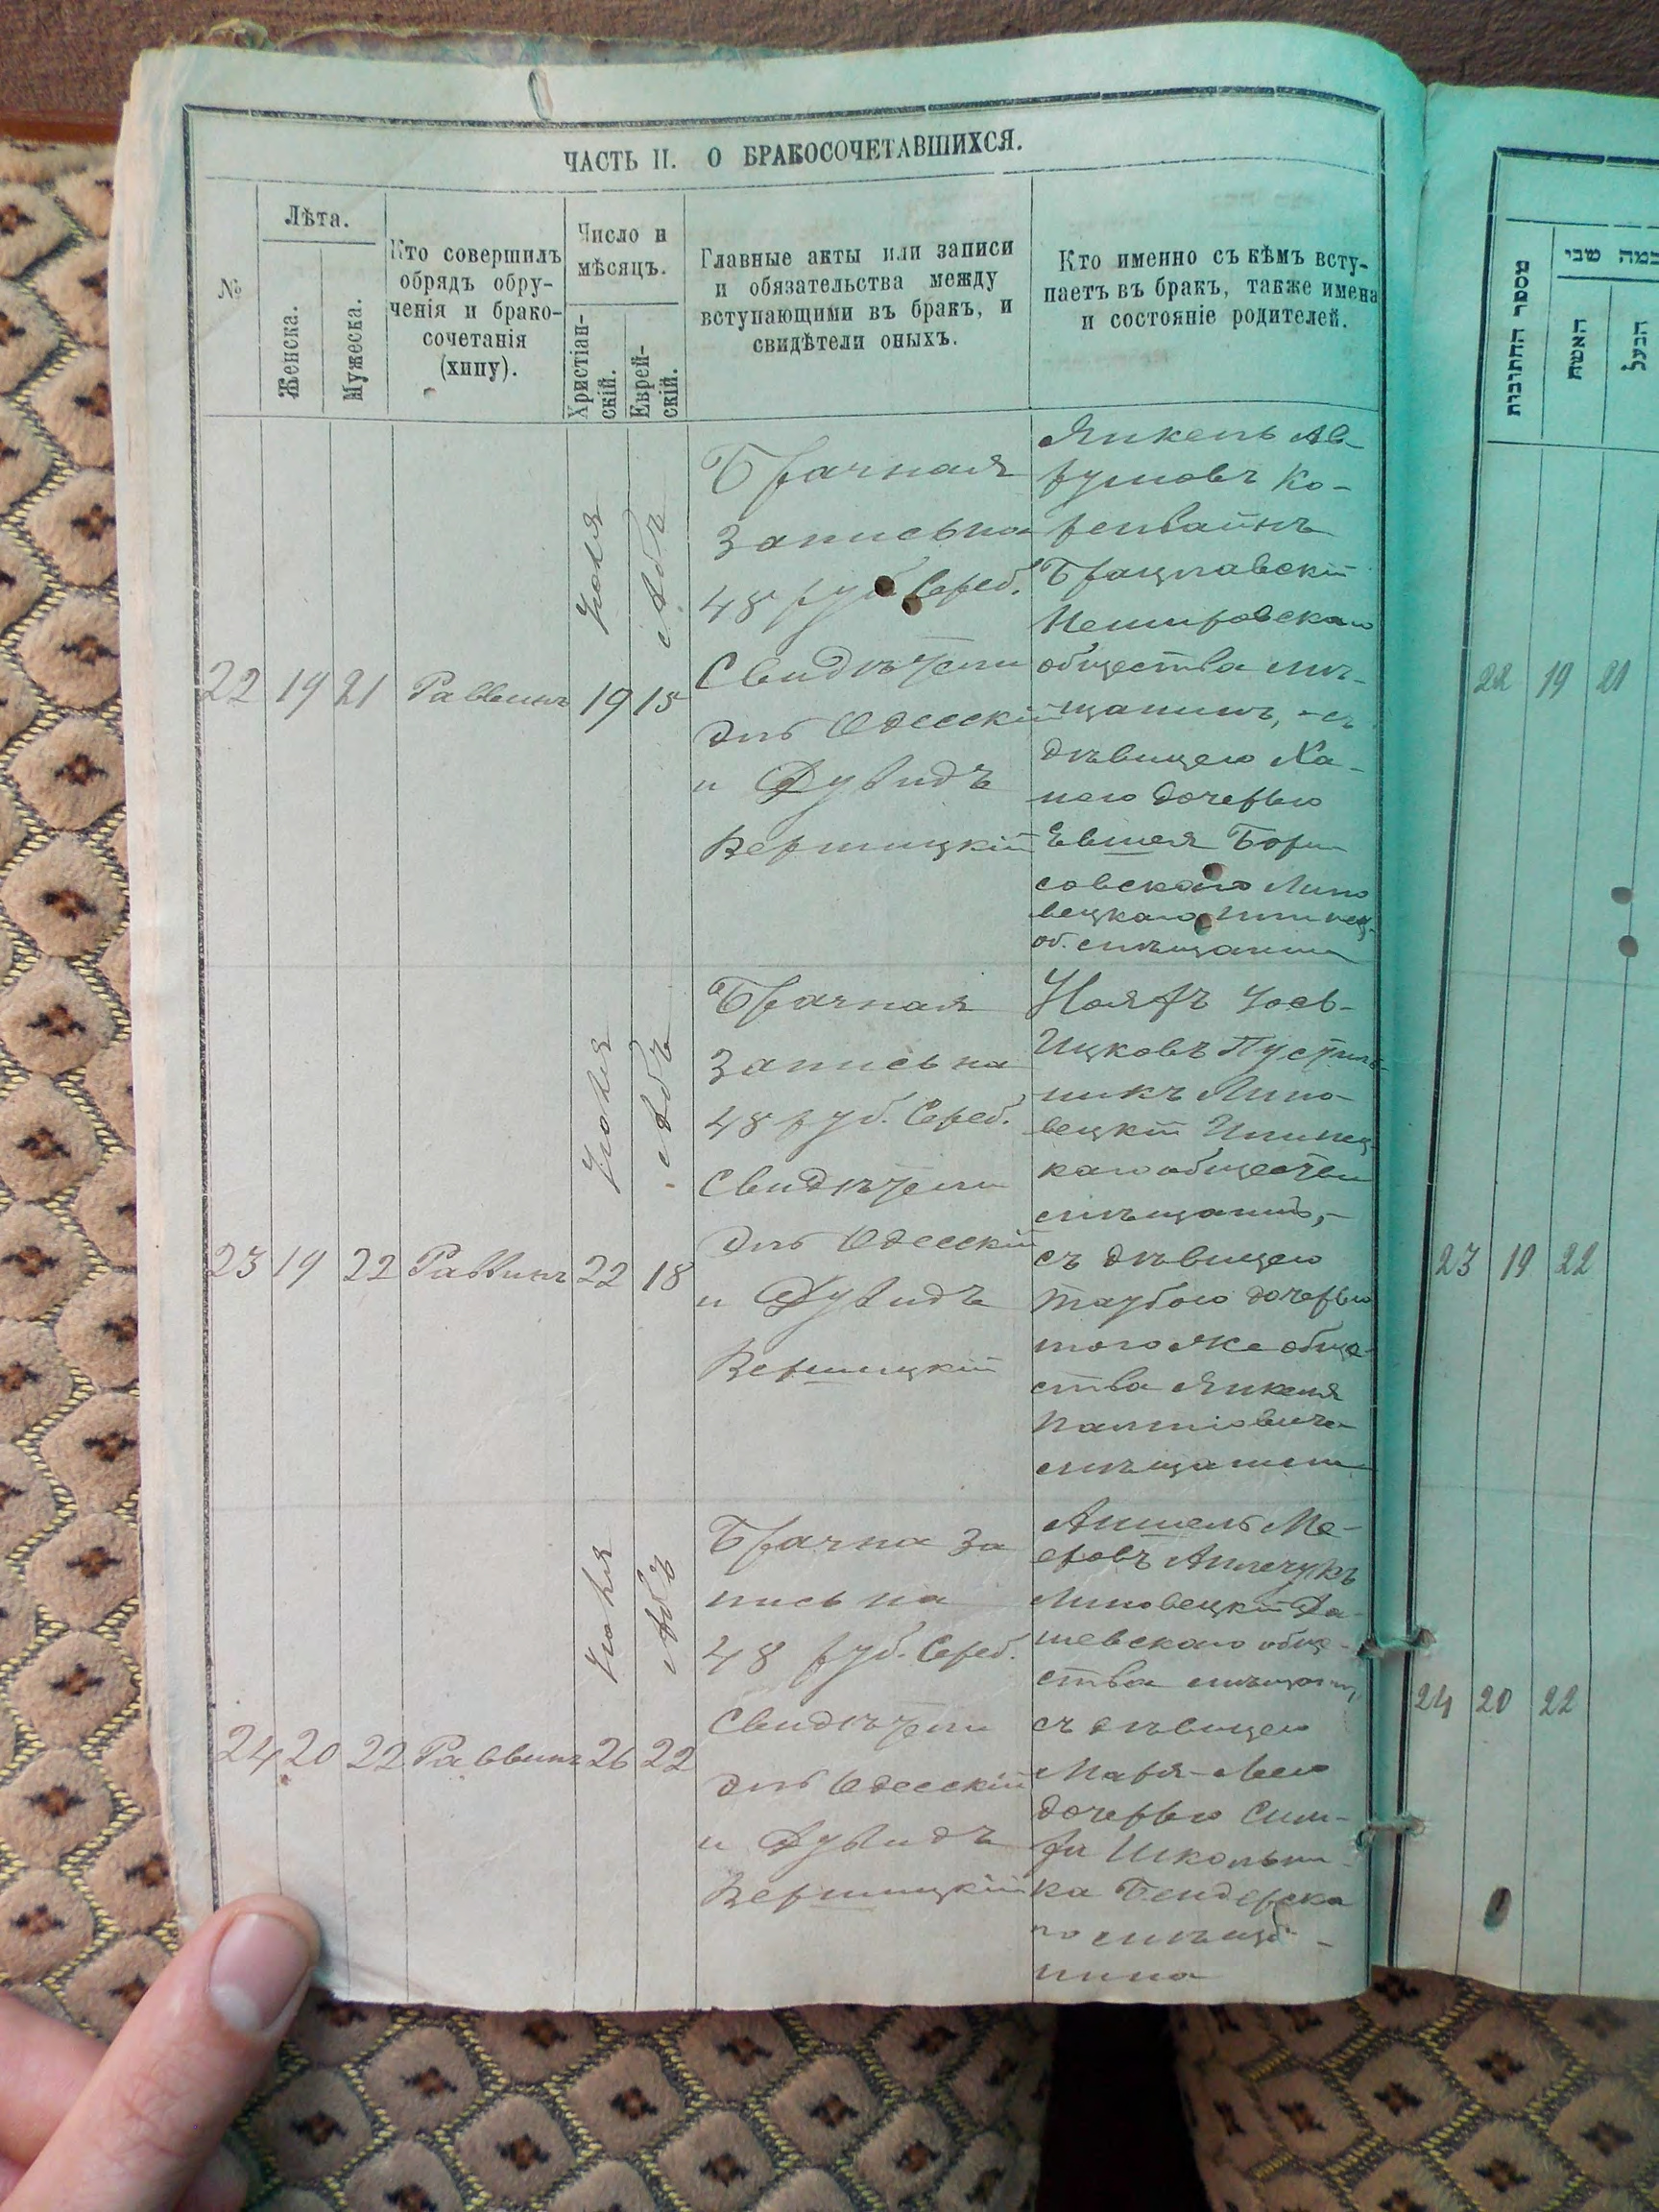 ЧАСТЬ II. О БРАКОСОЧЕТАВШИХСЯ.
№
Лѣта.
Женска.
Мужеска.
Кто совершилъ
обрядъ обру-
ченія и брако-
сочетанія
(хипу).
Число и
мѣсяцъ.
Христіан-
скій.
Еврей-
скій.
Главные акты или записи
и обязательства между
вступающими въ бракъ, и
свидѣтели оныхъ.
Кто именно съ кѣмъ всту-
паетъ въ бракъ, также имена
и состояніе родителей.
22 19 21 Раввинъ
Іюля
19
Абъ
15
Брачная
запись на
48 руб. Сереб.
Свидѣтели
Одесскій
и Дувидъ
Вершицкій
Янкель Ав-
румовъ Ко-
ренвайнъ
Брацлавскій
Немировскаго
общества мѣ-
щанинъ, съ
дѣвицею Ха-
ною дочерью
Евшея Бори
совскаго Липо
вецкаго
об. мѣщанина
23 19 22 Раввинъ
Іюля
22
Абъ
18
Брачная
запись на
48 руб. Сереб.
Свидѣтели
Одесскій
и Дувидъ
Вершицкій
Іось-
Ицковъ Пустиль-
никъ Липо-
вецкій Илинец-
каго общества
мѣщанинъ,-
съ дѣвицею
Таубою дочерью
того же обще-
ства Янкеля
мѣщанина
24 20 22 Раввинъ
Іюля
26
Абъ
22
Брачна за
пись на
48 руб. Сереб.
Свидѣтели
Одесскій
и Дувидъ
Вершицкій
Аншель Ме-
еровъ
Липовецкій Да-
шевскаго обще-
ства мѣщан.,
съ дѣвицею
Маря-Лею
дочерью Сим-
хи Школьни-
ка Бендерска
го мѣща-
нина
מספר החתונות
האשה
הבעל
כמה שני
22 19 21
23 19 22
24 20 22